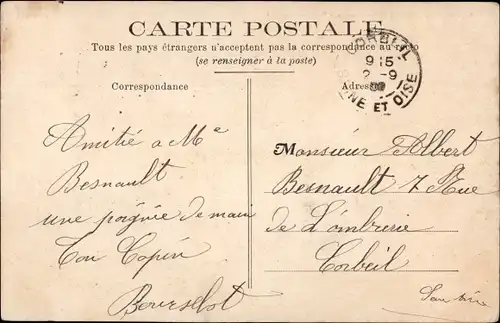 CARTE POSTALE
Tous les pays étrangers n'acceptent pas la correspondance au
(se renseigner à la poste)
Correspondance
Adres
CORBEIL
9 15
2 -9
SEINE ET OISE
Amitié a Me
Besnault
une poignée de main
Ton Copin
Bourselot
Monsieur Albert
Besnault 7 Rue
de L'ombrerie
Corbeil